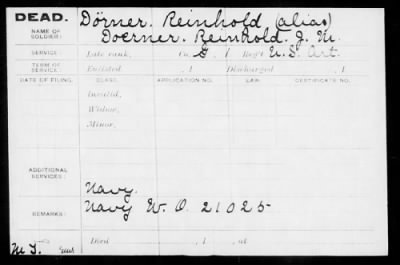 DEAD.
NAME OF SOLDIER:
Dörner. Reinhold (alias)
Doerner. Reinhold. J. M.
SERVICE: Late rank, Co. G, 1 Reg't U.S. Art.
TERM OF SERVICE: Enlisted , 1 Discharged , 1
DATE OF FILING. CLASS. APPLICATION NO. LAW. CERTIFICATE NO.
Invalid,
Widow,
Minor,
ADDITIONAL SERVICES:
Navy.
REMARKS: Navy W. O. 21025
Died , 1 , at